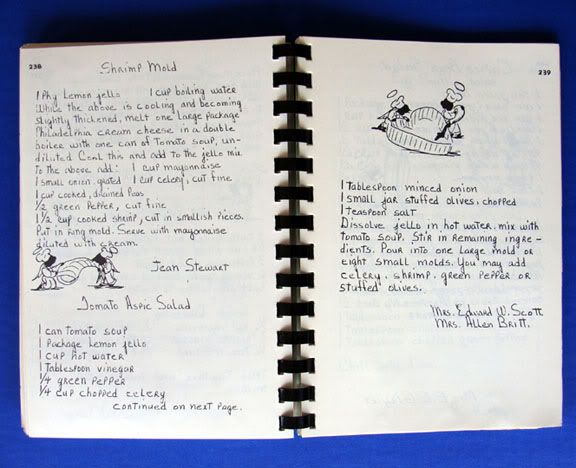 238
Shrimp Mold
1 Pkg Lemon Jello 1 cup boiling water
While the above is cooling and becoming
slightly thickened, melt one large package
Philadelphia cream cheese in a double
boiler with one can of Tomato soup, un-
diluted Cool this and add to the jello mix
To the above add: 1 cup mayonnaise
1 small onion, grated 1 cup celery, cut fine
1 cup cooked, drained Peas
1/2 green Pepper, cut fine
1 1/2 cup cooked shrimp, cut in smallish pieces.
Put in ring mold. Serve with mayonnaise
diluted with cream.
Jean Stewart
Tomato Aspic Salad
1 can tomato soup
1 Package Lemon Jello
1 cup hot water
1 Tablespoon vinegar
1/4 green pepper
1/4 cup chopped celery
continued on next page.
239
1 Tablespoon minced onion
1 small jar stuffed olives, chopped
1 teaspoon salt
Dissolve jello in hot water, mix with
tomato soup. Stir in remaining ingre-
dients. Pour into one large mold or
eight small molds. You may add
celery, shrimp, green pepper or
stuffed olives.
Mrs. Edward W. Scott
Mrs. Allen Britt.